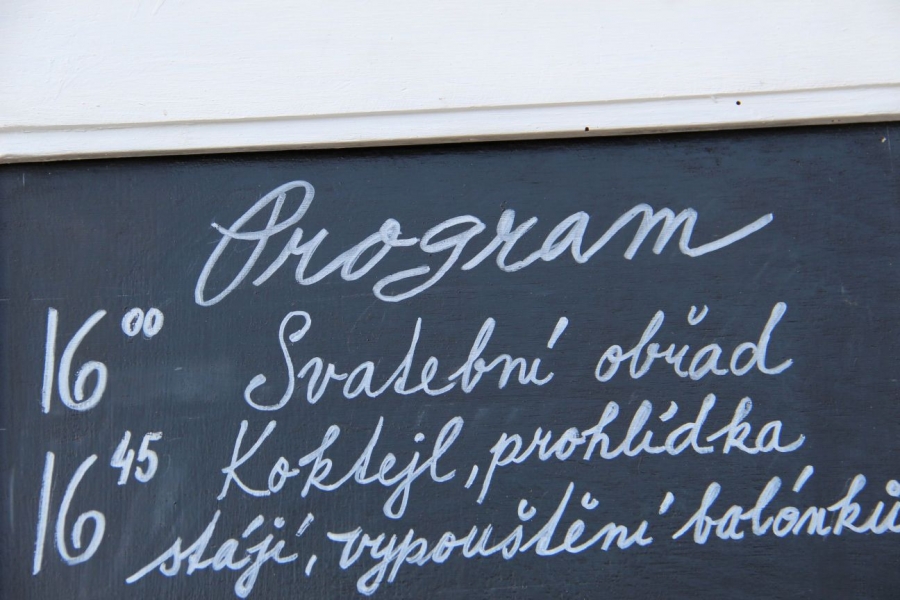 Program
16⁰⁰ Svatební obřad
16⁴⁵ Koktejl, prohlídka
stájí, vypouštění balónků